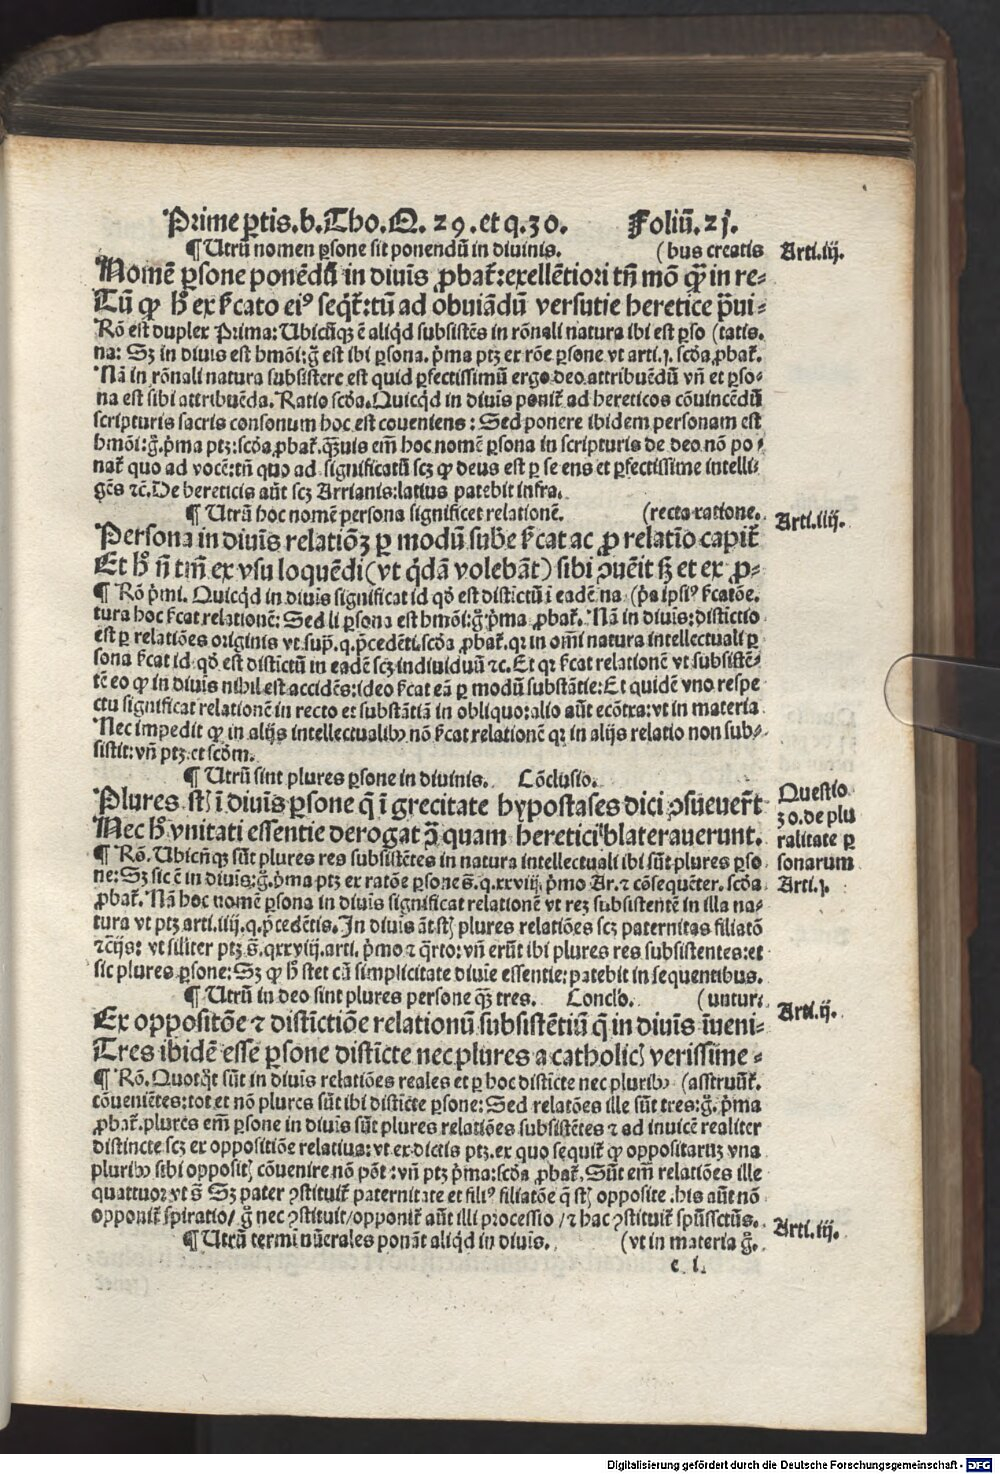 Prime ꝑtis.b.Tho.Q. 29. et q.30. Foliū.21.
¶ Utrū nomen ꝑsone sit ponendū in diuinis. (bus creatis Arti.iij.
Nomē ꝑsone ponēdū in diuīs ꝓbat᷑:exellētiori tn̄ mō ꝙ̄ in re⸗
Tū ꝙ hͦ ex ſ̄cato eiꝰ seq̄t᷑:tū ad obuiādū versutie heretice p̄ui⸗
Rō est duplex Prima: Ubicūqꝫ ē aliqd subsistēs in rōnali natura ibi est ꝑso (tatis.
na: Sꝫ in diuīs est hmōi:g̊ est ibi ꝑsona. p̄ma ptꝫ ex rōe ꝑsone vt arti.1. scd̄a ꝓbat᷑.
Nā in rōnali natura subsistere est quid ꝑfectissimū ergo deo attribuēdū vn̄ et ꝑso⸗
na est sibi attribuēda. Ratio scd̄a. Quicqd in diuīs ponit᷑ ad hereticos cōuincēdū
scripturis sacris consonum hoc est coueniens : Sed ponere ibidem personam est
hmōi:g̊.p̄ma ptꝫ:scd̄a ꝓbat᷑. quis em̄ hoc nomē ꝑsona in scripturis de deo nō po⸗
nat᷑ quo ad vocē:tn̄ quo ad significatū scꝫ ꝙ deus est ꝑ se ens et ꝑfectissime intelli⸗
gēs ⁊c̄. De hereticis aūt scꝫ Arrianis:latius patebit infra.
¶ Utrū hoc nomē persona significet relationē. (recta ratione. Arti.iiij.
Persona in diuīs relatiōꝫ ꝑ modū sube ſ̄cat ac ꝓ relatīo capit᷑
Et hͦ n̄ tm̄ ex vsu loquēdi (vt qdā volebāt) sibi ꝯuēit sꝫ et ex ꝓ⸗
¶ Rō p̄mi. Quicqd in diuīs significat id qd̄ est distīctū ī eadē na (p̄a ipsiꝰ ſ̄catōe.
tura hoc ſ̄cat relationē: Sed li ꝑsona est hmōi:g̊ p̄ma ꝓbat᷑. Nā in diuīs:distīctio
est ꝑ relatiōes originis vt sup̄.q.p̄cedēti.scd̄a ꝓbat᷑.qꝛ in om̄i natura intellectuali ꝑ
sona ſ̄cat id qd̄ est distīctū in eadē scꝫ indiuiduū ⁊c. Et qꝛ ſ̄cat relationē vt subsistē⸗
tē eo ꝙ in diuīs nihil est accidēs:ideo ſ̄cat eā ꝑ modū substātie: Et quidē vno respe
ctu significat relationē in recto et substātiā in obliquo:alio aūt ecōtra:vt in materia
Nec impedit ꝙ in alijs intellectualibꝰ nō ſ̄cat relationē qꝛ in alijs relatio non sub⸗
sistit:vn̄ ptꝫ.et scd̄m.
¶ Utrū sint plures ꝑsone in diuinis. Cōclusio.
Plures st̄ ī diuīs ꝑsone q̄ ī grecitate hypostases dici ꝯsueuer̄t
Nec hͦ vnitati essentie derogat quam heretici blaterauerunt.
Questio
30.de plu
ralitate ꝑ
sonarum
Arti.1.
¶ Rō. Ubicn̄qꝫ sūt plures res subsistētes in natura intellectuali ibi sūt plures ꝑso
ne: Sꝫ sic ē in diuīs:g̊.p̄ma ptꝫ ex ratōe ꝑsone s̄.q.xxviij. p̄mo Ar.⁊ cōsequēter. scd̄a
ꝓbat᷑. Nā hoc nomē ꝑsona in diuīs significat relationē vt reꝫ subsistentē in illa na⸗
tura vt ptꝫ arti.iiij.q.p̄cedētis. In diuīs āt st̄ plures relatiōes scꝫ paternitas filiatō
⁊c̄ijs: vt siliter ptꝫ s̄.qxxviij.arti. p̄mo ⁊ q̄rto:vn̄ erūt ibi plures res subsistentes:et
sic plures ꝑsone: Sꝫ ꝙ hͦ stet cū simplicitate diuīe essentie:patebit in sequentibus.
¶ Utrū in deo sint plures persone qꝫ tres. Conclo. (untur: Arti.ij.
Ex oppositōe ⁊ distīctiōe relationū subsistētiū q̄ in diuīs īueni⸗
Tres ibidē esse ꝑsone distīcte nec plures a catholic verissime ⸗
¶ Rō. Quotq̄t sūt in diuīs relatiōes reales et ꝑ hoc distīcte nec pluribꝰ (asstruūt᷑.
cōueniētes:tot et nō plures sūt ibi distīcte ꝑsone: Sed relatōes ille sūt tres:g̊. p̄ma
ꝓbat᷑.plures em̄ ꝑsone in diuīs sūt plures relatiōes subsistētes ⁊ ad inuicē realiter
distincte scꝫ ex oppositiōe relatiua: vt ex dictis ptꝫ.ex quo sequit᷑ ꝙ oppositarū vna
pluribꝰ sibi opposit cōuenire nō pōt: vn̄ ptꝫ p̄ma:scd̄a ꝓbat᷑. Sūt em̄ relatiōes ille
quattuor vt s̄ Sꝫ pater ꝯstituit᷑ paternitate et filiꝰ filiatōe q̄ st̄ opposite. his aūt nō
opponit᷑ spiratio/ g̊ nec ꝯstituit/opponit᷑ aūt illi processio /⁊ hac ꝯstituit᷑ spūssctūs.
¶ Utrū termi nūerales ponāt aliqd in diuīs. (vt in materia g̊. Arti.iij.
e i.
Digitalisierung gefördert durch die Deutsche Forschungsgemeinschaft - DFG